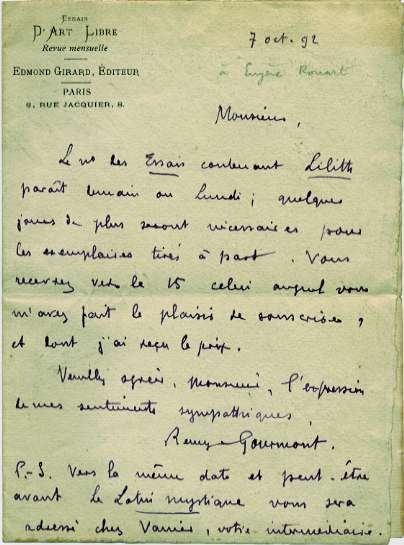 ESSAIS
D'ART LIBRE
Revue mensuelle
EDMOND GIRARD, ÉDITEUR
PARIS
8, RUE JACQUIER, 8.
7 oct. 92
à Eugène Rouart
Monsieur,
Le no des Essais contenant Lilith
paraît demain ou Lundi ; quelques
jours de plus seront nécessaires pour
les exemplaires tirés à part. Vous
recevrez vers le 15 celui auquel vous
m'avez fait le plaisir de souscrire,
et dont j'ai reçu le prix.
Veuillez agréer, Monsieur, l'expression
de mes sentiments sympathiques,
Remy de Gourmont.
P.-S. Vers la même date et peut-être
avant le Latin mystique vous sera
adressé chez Vanier, votre intermédiaire.